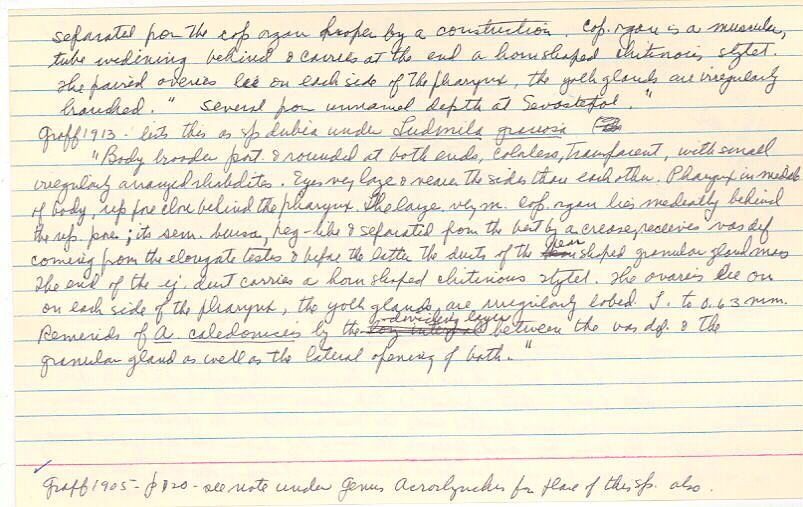 separated from the cop organ proper by a constriction. Cop. organ is a muscular,
tube widening behind & carries at the end a horn shaped chitinous stylet.
The paired ovaries lie on each side of the pharynx, the yolk glands are irregularly
branched." Several from unnamed depth at Sevastopol."
Graff 1913 - lists this as sp dubia under Ludmila graciosa
"Body broader post. & rounded at both ends, colorless, transparent, with small
irregularly arranged rhabdites. Eyes very large & nearer the sides than each other. Pharynx in middle
of body, rep pore close behind the pharynx. The large, very m. cop. organ lies medeally behind
the rep. pore; its sem. bursa, peg-like & separated from the rest by a crease, receives vas def
coming from the elongate testes & before the latter the ducts of the pear shaped granular gland mass
The end of the ej. duct carries a horn shaped chitinous stylet. The ovaries lie on
on each side of the pharynx, the yolk glands are irregularly lobed. L. to 0.63 mm.
Reminds of A. caledonicus by the dividing layer between the vas def. & the
granular gland as well as the lateral opening of both."
Graff 1905 - p 120 - see note under Genus Acrorhynchus for place of this sp. also.